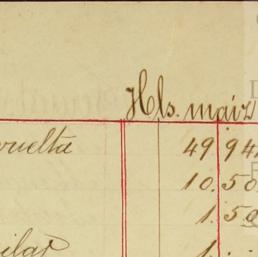 Hls. maiz
vuelta 49 94
10. 50
1. 50
ilas 1.